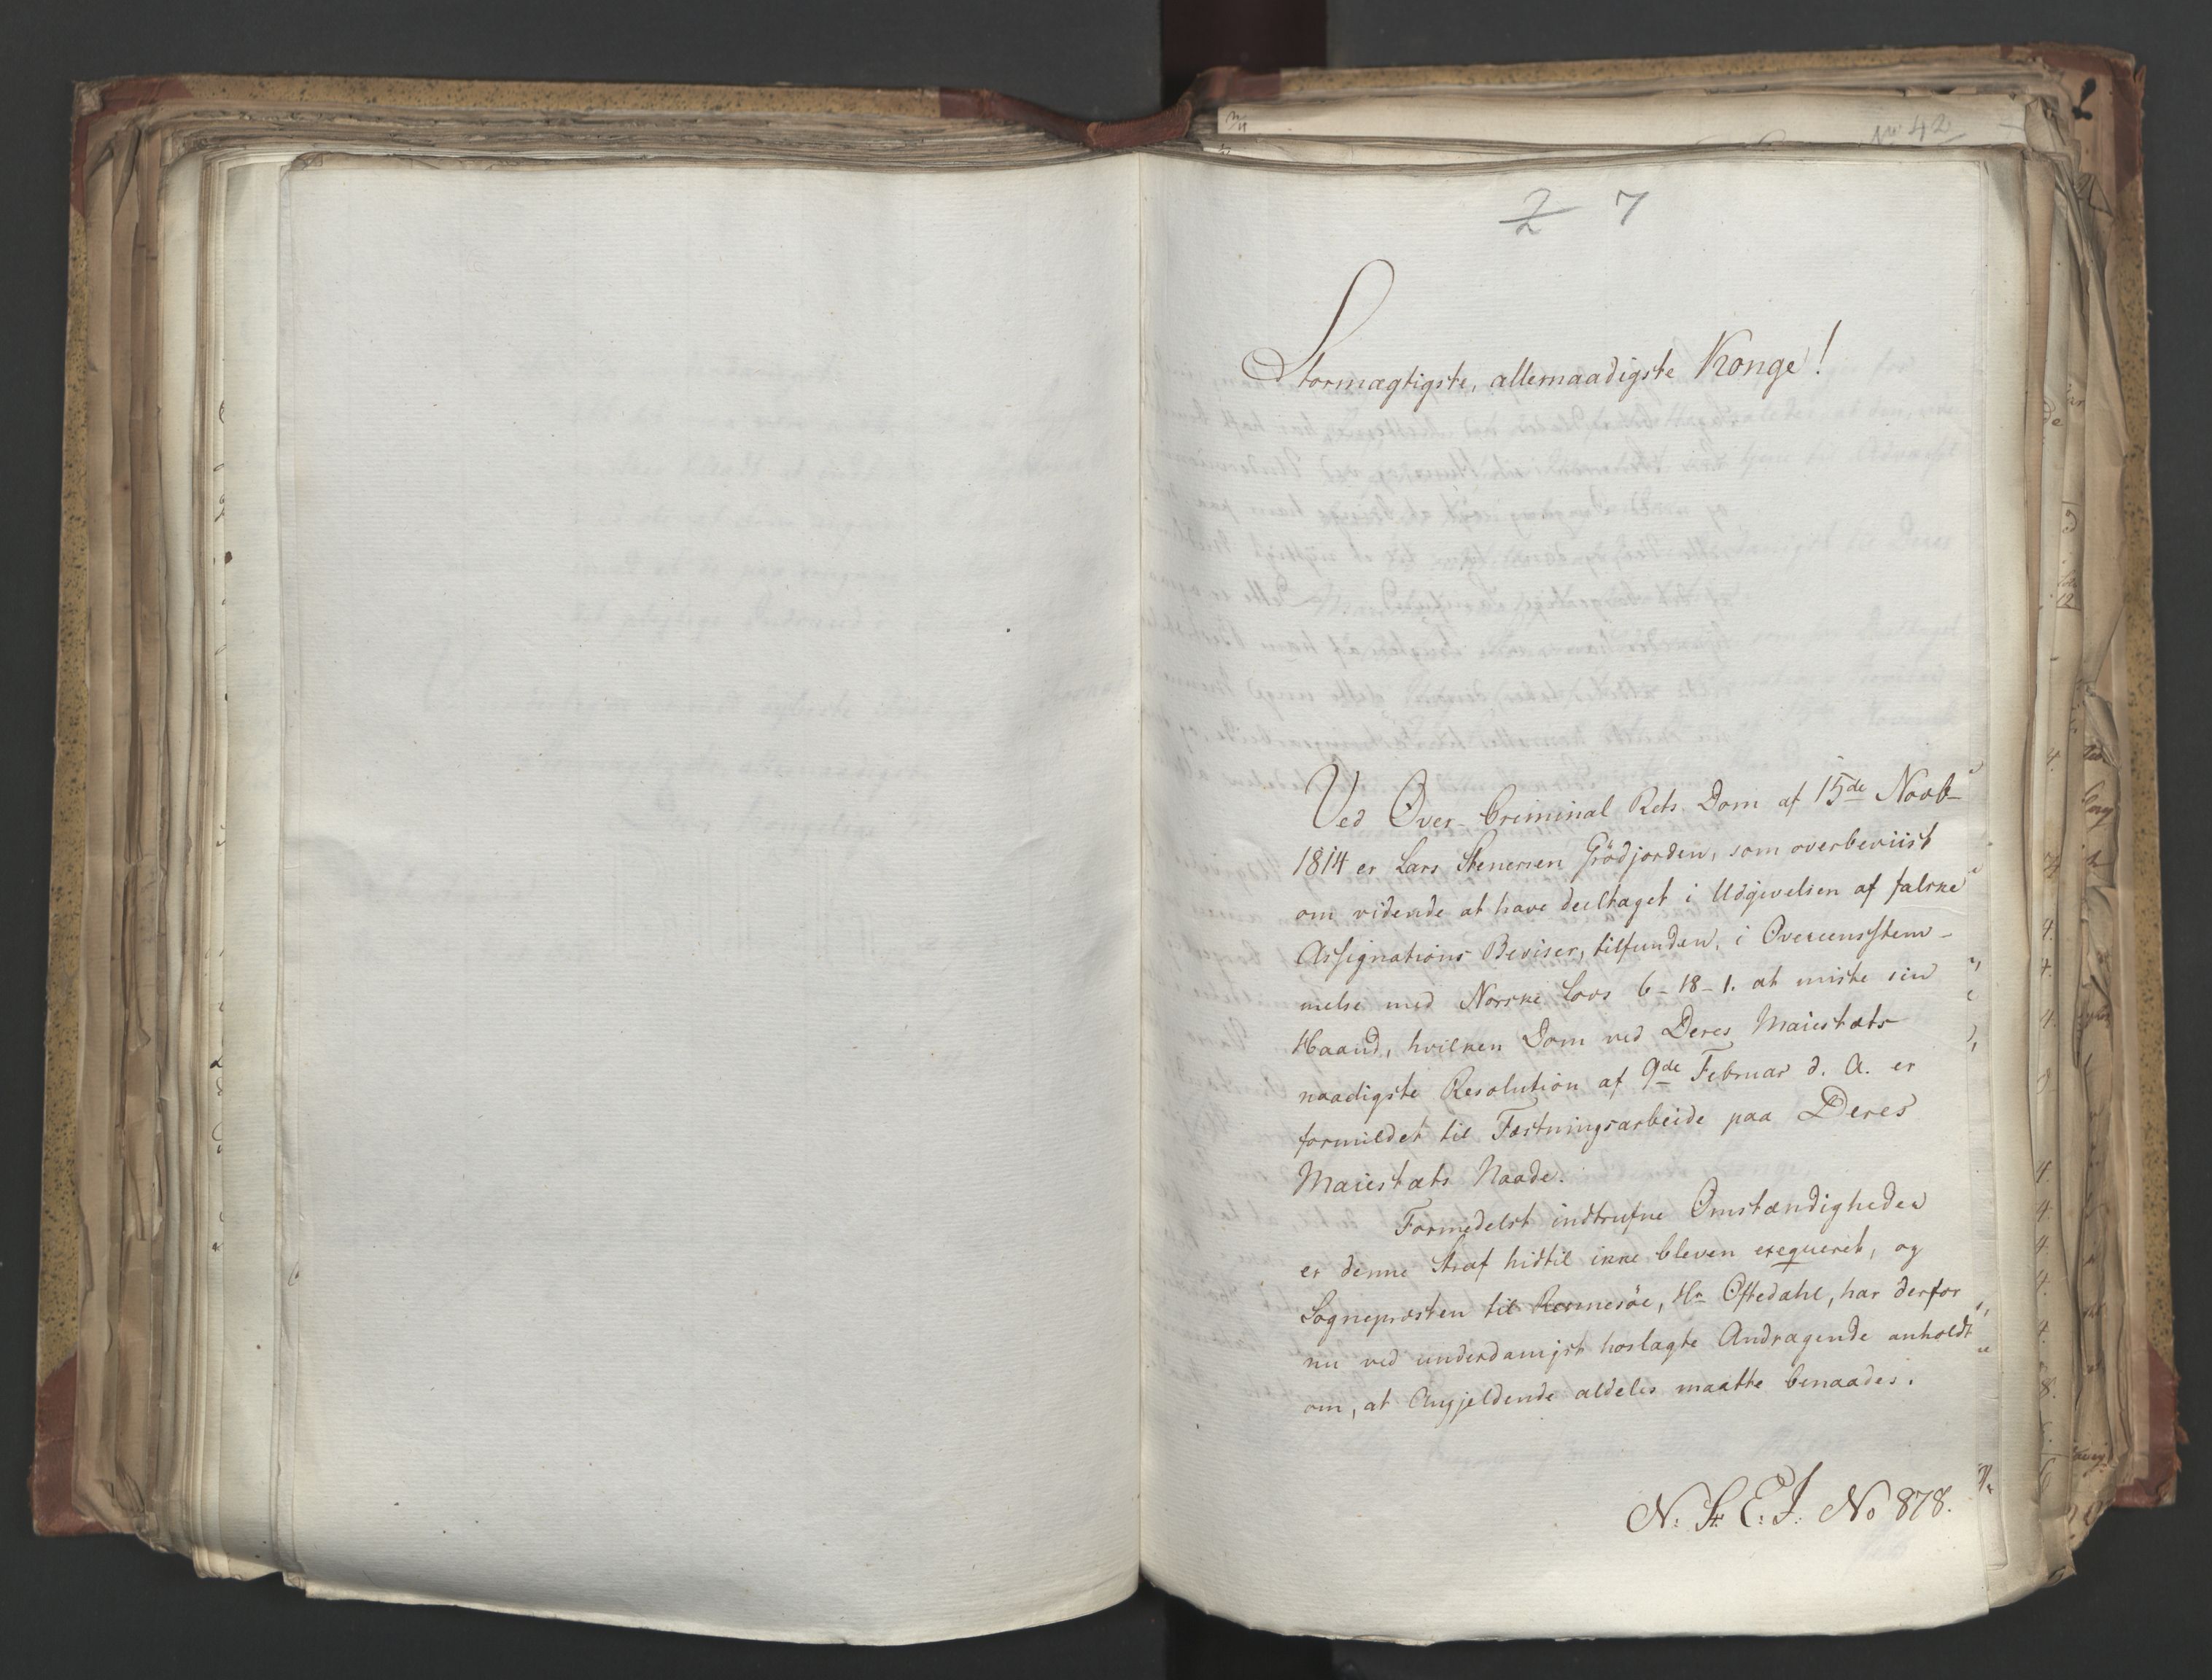 No 42
2 7
Stormægtigste, allernaadigste Konge!
Ved Over-Criminal Rets Dom af 15de Novb
1814 er Lars Stenersen Grödjorden, som overbeviist
om vidende at have deeltaget i Udgivelsen af falske
Assignations Beviser, tilfunden, i Overeensstem-
melse med Norske Lovs 6-18-1. at miste sin
Haand, hvilken Dom ved Deres Maiestæts
naadigste Resolution af 9de Februar d. A. er
formildet til Fæstningsarbeide paa Deres
Maiestæts Naade.
Formedelst indtrufne Omstændigheder
er denne Straf hidtil ikke bleven exequeret, og
Sognepræsten til Rennesöe, Hr Oftedahl, har derfor
nu ved underdanigst hoslagte Andragende anholdt
om, at Angjeldende aldeles maatte benaades.
N: St: E: I: No 878.